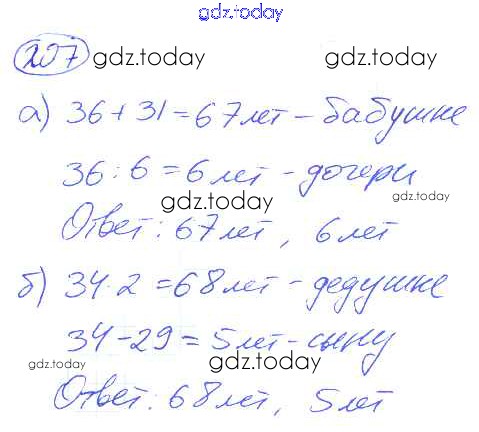 gdz.today
207 gdz.today
а) 36 + 31 = 67 лет – бабушке
36 : 6 = 6 лет – дочери
gdz.today gdz.today
Ответ: 67 лет, 6 лет
б) 34 · 2 = 68 лет – дедушке
34 – 29 = 5 лет – сыну
gdz.today gdz.today
Ответ: 68 лет, 5 лет